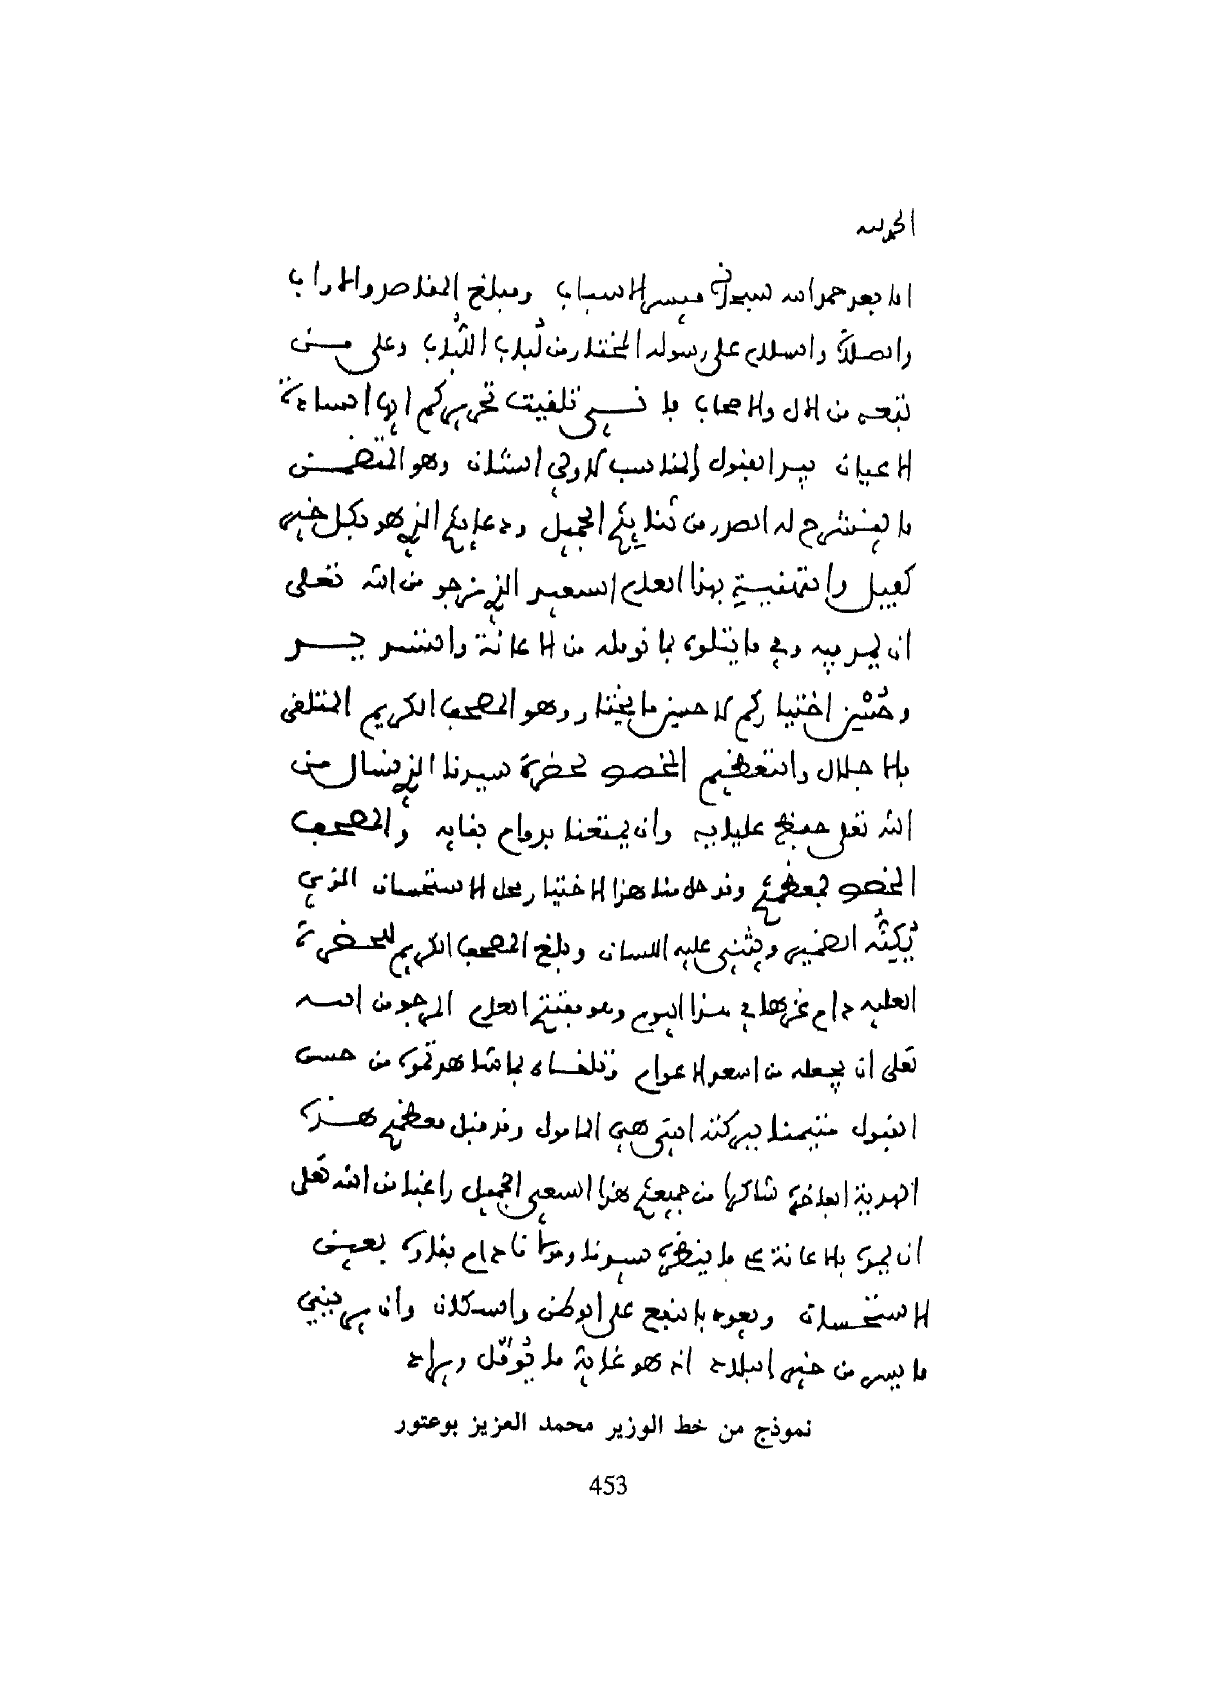 الحمد لله
اما بعد حمد الله سبحانه ميسر الاسباب ومبلغ المقاصد والاراب
والصلاة والسلام على رسوله المختار من لباب اللباب وعلى من
تبعه من الال والاصحاب فاني تلقيت تحريركم ايها السادة
الاعيان بيد القبول المناسب لاولي الشان وهو المتضمن
ما ينشرح له الصدر من ثنايئكم الجميل ودعايئكم الذي هو بكل خير
كفيل والتهنية بهذا العام السعيد الذي نرجو من الله تعلى
ان يمد فيه وفي ما يتلوه بما نومله من الاعانة والتسديد
وحسن اختياركم لاحسن ما يختار وهو المصحف الكريم المتلقى
بالاجلال والتعظيم المخصوص لحضرة سيدنا الذي نسال من
الله تعلى حفظ علياه وان يمتعنا بدوام بقايه والمصحف
المخصوص لمعظمكم وقد حل منا هذا الاختيار محل الاستحسان الذي
يكنه الضمير ويثني عليه اللسان وبلغ المصحف الكريم للحضرة
العليه دام عزها في هذا اليوم وهو مفتتح العام المرجو من الله
تعلى ان يجعله من اسعد الاعوام وتلقاه بما شاهدتموه من حسن
القبول متيمنا ببركته التي هي المامول وقد قبل معظمكم هذه
الهدية الفاخرة شاكرا من جميعكم هذا السعي الجميل راغبا من الله تعلى
ان يمدكم بالاعانة على ما ينظره سيدنا ومولانا دام بقاوه بعين
الاستحسان ويعود بالنفع على الوطن والسكان وان يريني
ما يسر من خير البلاد اذ هو غاية ما يومل ويراد
نموذج من خط الوزير محمد العزيز بوعتور
453